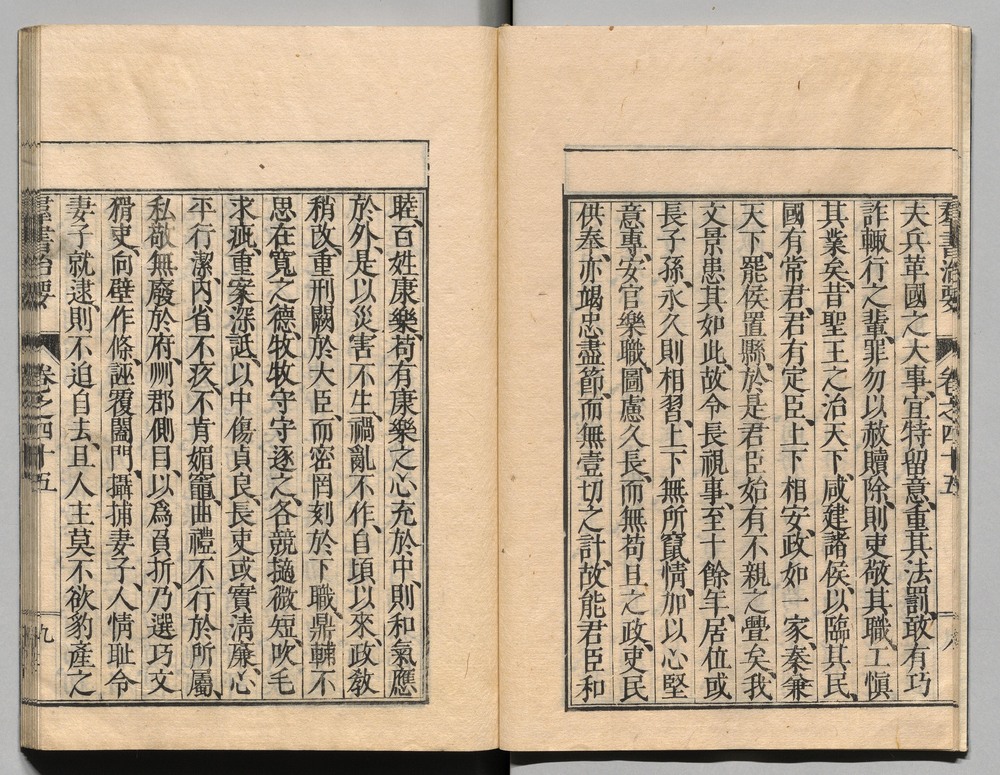 羣書治要 卷之四十五 八
夫兵革國之大事、宜特留意、重其法罰、敢有巧
詐輙行之輩、罪勿以赦贖除、則吏敬其職、工愼
其業矣、昔聖王之治天下、咸建諸侯、以臨其民、
國有常君、君有定臣、上下相安、政如一家、秦兼
天下、罷侯置縣、於是君臣始有不親之釁矣、我
文景患其如此、故令長視事、至十餘年、居位或
長子孫、永久則相習、上下無所竄情、加以心堅
意專、安官樂職、圖慮久長、而無苟且之政、吏民
供奉、亦竭忠盡節、而無壹切之計、故能君臣和
睦、百姓康樂、苟有康樂之心充於中、則和氣應
於外、是以災害不生、禍亂不作、自頃以來、政敎
稍改、重刑闕於大臣、而密罔刻於下職、鼎輔不
思在寬之德、牧牧守守逐之、各競擿微短、吹毛
求疵、重案深詆、以中傷貞良、長吏或實清廉、心
平行潔、內省不疚、不肯媚竈、曲禮不行於所屬、
私敬無廢於府、州郡側目、以爲負折、乃選巧文
猾吏、向壁作條、誣覆闔門、攝捕妻子、人情耻令
妻子就逮、則不迫自去、且人主莫不欲豹產之
羣書治要 卷之四十五 九